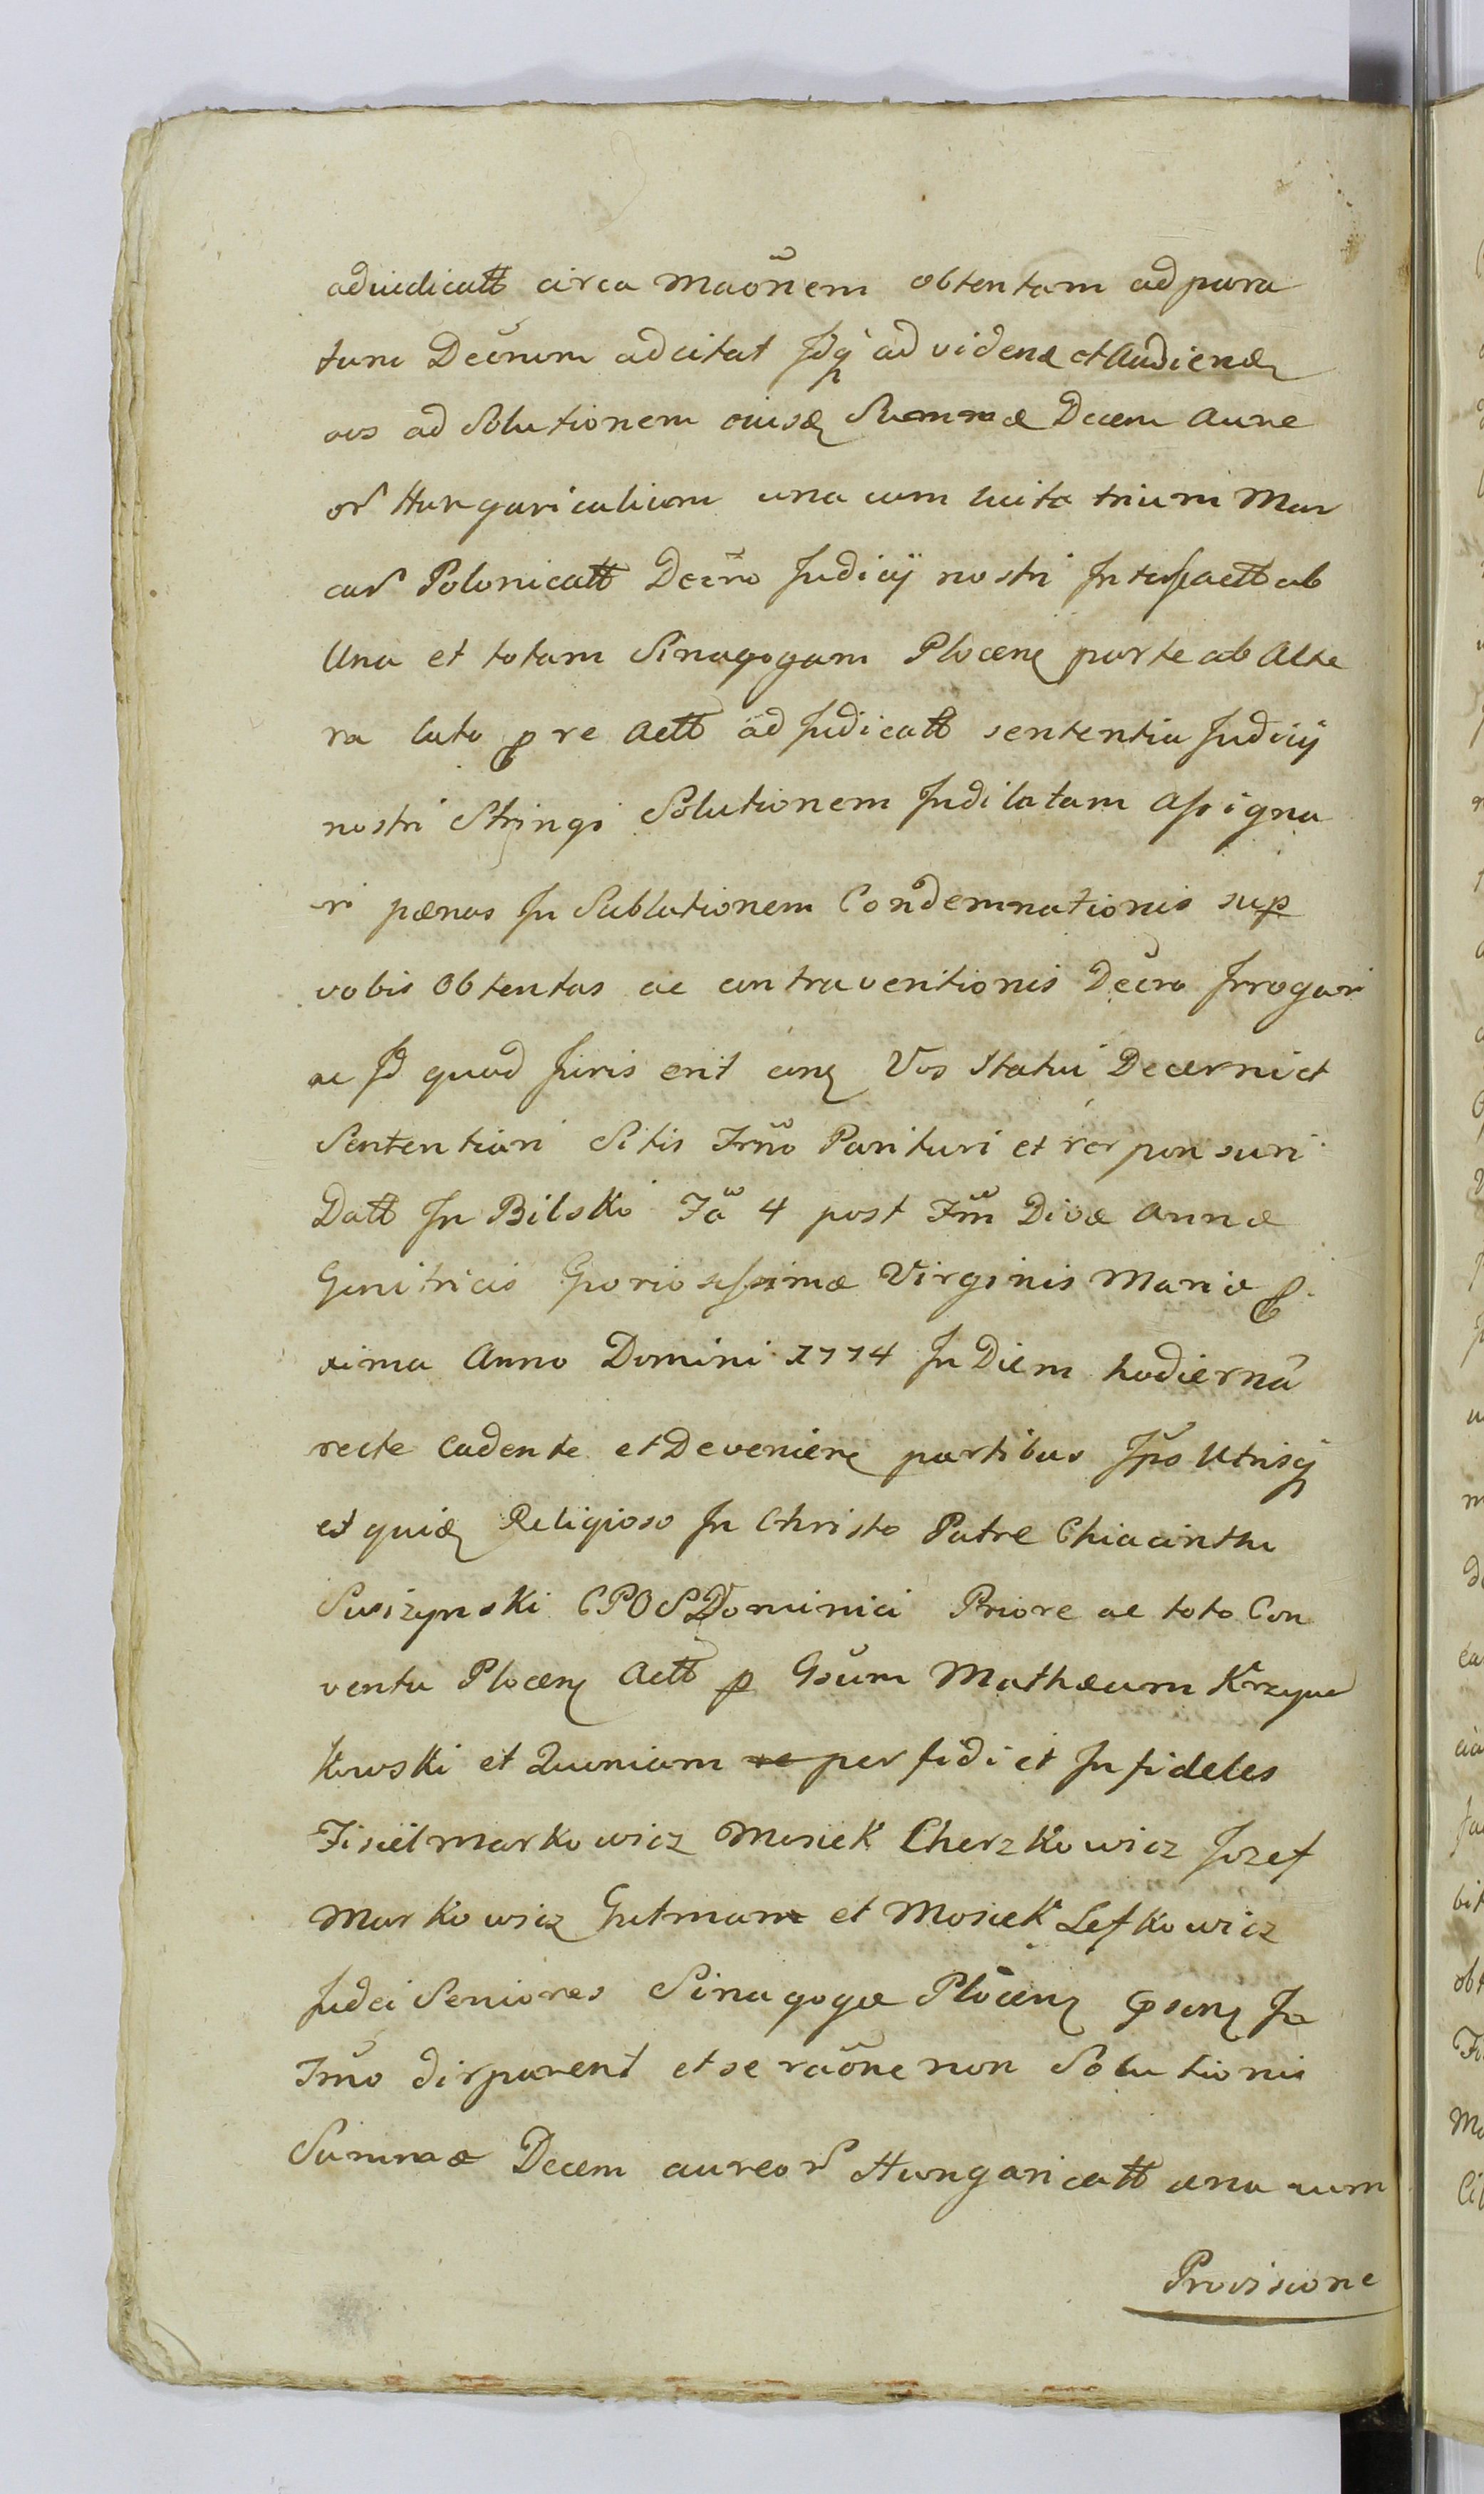 adiudicatt circa Maõnem obtentam ad para
tum Decrum adcitat Idq ad videnđ et Audienđ
vos ad Solutionem eiusđ Summæ Decem Aure
or Hungaricalium una cum luita trium Mar
car Polonicatt Decro Judicij nostri Inter act ab
Una et totam Sinagogam Plocenę parte ab Alte
ra lato p re Actt adJudicatt sententia Judicij
nostri Stringi Solutionem Indilatam Assigna
ri pænas In Sublationem Condemnationis sup
vobis Obtentas ac contraventionis Decro Irrogari
ac Id quod Juris erit circa Vos Statui Decerni et
Sententiari Sitis Trno Parituri et responsuri
Datt In Bilsko Fa 4 post Fm Divæ Annæ
Genitricis Gloriosissimæ Virginis Mariæ p
xima Anno Domini 1774 In Diem hodiernã
recte Cadente et Devenienę partibus Ipso Utrisq
et quiđ Religioso In Christo Patre Chiacintho
Suszynski CPOSDominici Priore ac toto Con
ventu Plocenę Actt p Gsum Mathæum Krzyna
kowski et Quoniam perfidi et Infideles
Fisiel Markowicz Mosiek Cherzkowicz Jozef
Markowicz Gutman et Mosiek Lefkowicz
Judei Seniores Sinagogæ Plocenę psonę In
Trno disparent et se raõne non Solutionis
Summæ Decem aureor Hungaricatt una cum
Provisione